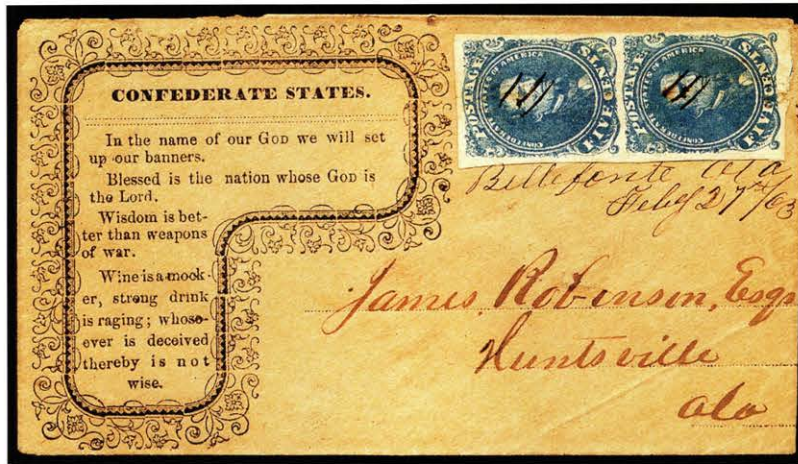 CONFEDERATE STATES.
In the name of our GOD we will set
up our banners.
Blessed is the nation whose GOD is
the Lord.
Wisdom is bet-
ter than weapons
of war.
Wine is a mock-
er, strong drink
is raging; whoso-
ever is deceived
thereby is not
wise.
POSTAGE
CONFEDERATE STATES OF AMERICA
FIVE CENTS
POSTAGE
CONFEDERATE STATES OF AMERICA
FIVE CENTS
Bellefonte Ala
Feby 27th/63
James Robinson, Esqr
Huntsville
Ala